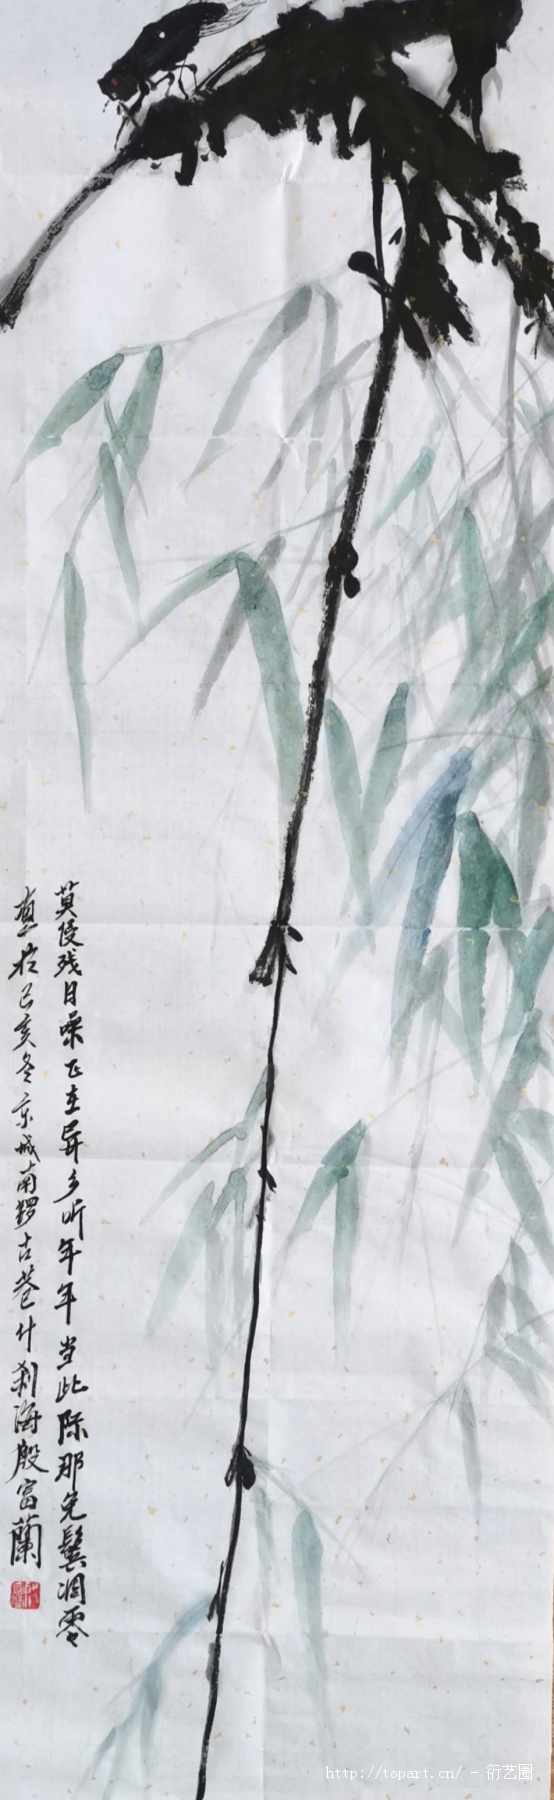 莫侵残日噪正在异乡听年年当此际那免鬓凋零
直於己亥冬京城南锣古巷什刹海殷富蘭
http://topart.cn/ - 衍艺圈